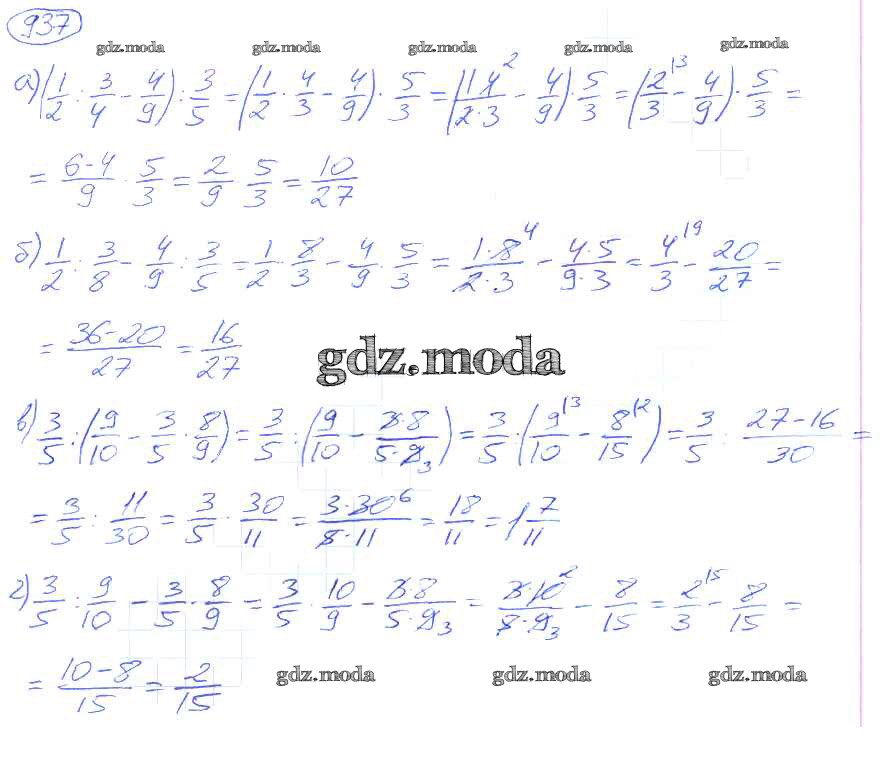 937
gdz.moda gdz.moda gdz.moda gdz.moda gdz.moda
а) (1/2 : 3/4 - 4/9) : 3/5 = (1/2 · 4/3 - 4/9) · 5/3 = (1·4²/2·3 - 4/9) · 5/3 = (2/3 |3 - 4/9) · 5/3 =
= 6-4/9 · 5/3 = 2/9 · 5/3 = 10/27
б) 1/2 : 3/8 - 4/9 : 3/5 = 1/2 · 8/3 - 4/9 · 5/3 = 1·8⁴/2·3 - 4·5/9·3 = 4/3 |9 - 20/27 =
= 36-20/27 = 16/27
gdz.moda
в) 3/5 : (9/10 - 3/5 · 8/9) = 3/5 : (9/10 - 3·8/5·9₃) = 3/5 : (9/10 |3 - 8/15 |2) = 3/5 : 27-16/30 =
= 3/5 : 11/30 = 3/5 · 30/11 = 3·30⁶/5·11 = 18/11 = 1 7/11
г) 3/5 : 9/10 - 3/5 · 8/9 = 3/5 · 10/9 - 3·8/5·9₃ = 3·10²/5·9₃ - 8/15 = 2/3 |5 - 8/15 =
= 10-8/15 = 2/15
gdz.moda gdz.moda gdz.moda